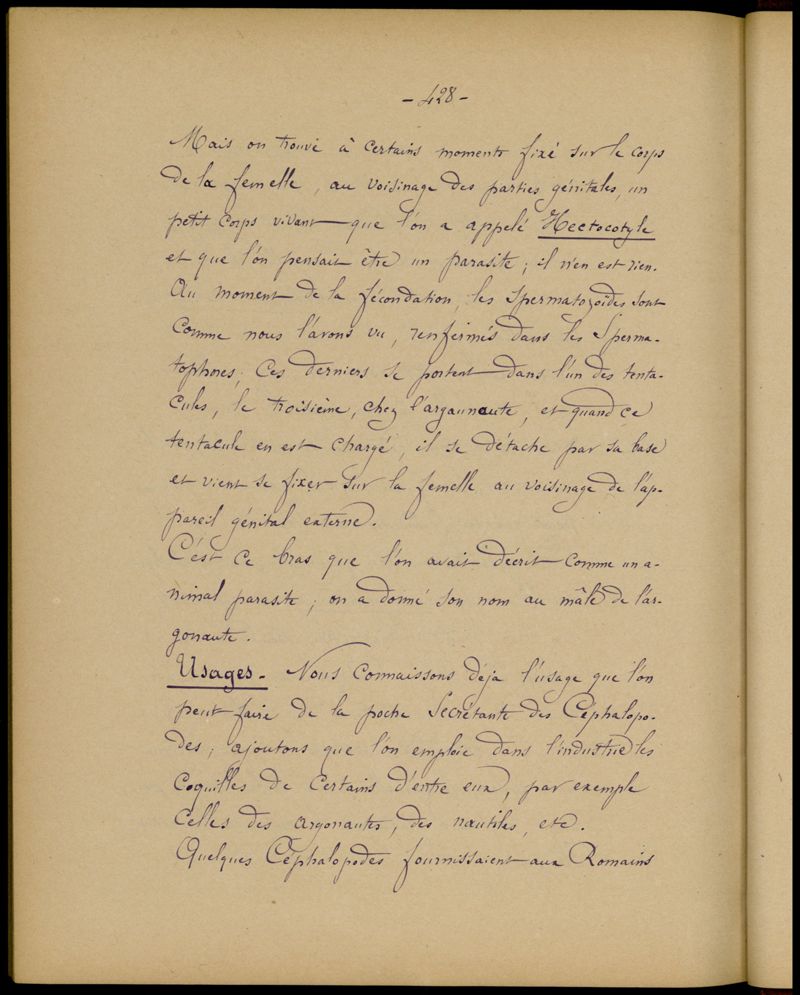 - 428 -
Mais on trouve à certains moments fixé sur le corps
de la femelle, au voisinage des parties génitales, un
petit corps vivant que l'on a appelé Hectocotyle
et que l'on pensait être un parasite ; il n'en est rien.
Au moment de la fécondation, les Spermatozoïdes sont
comme nous l'avons vu, renfermés dans les Sperma-
tophores, Ces derniers se portent dans l'un des tenta-
cules, le troisième, chez l'argaunaute, et quand ce
tentacule en est chargé, il se détache par sa base
et vient se fixer sur la femelle au voisinage de l'ap-
pareil génital externe.
C'est ce bras que l'on avait décrit comme un a-
nimal parasite ; on a donné son nom au mâle de l'ar-
gonaute.
Usages - Nous connaissons déja l'usage que l'on
peut faire de la poche Secrétante des Céphalopo-
des ; ajoutons que l'on emploie dans l'industrie les
coquilles de certains d'entre eux, par exemple
celles des argonautes, des nautiles, etc.
Quelques Céphalopodes fournissaient aux Romains